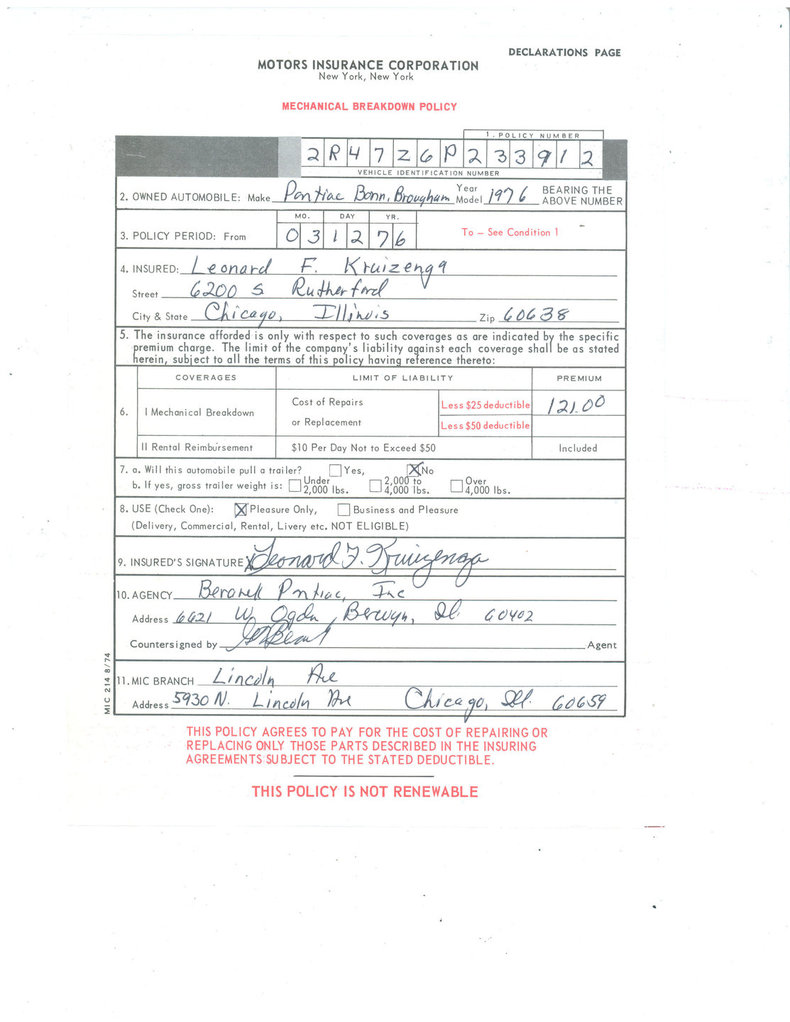 DECLARATIONS PAGE
MOTORS INSURANCE CORPORATION
New York, New York
MECHANICAL BREAKDOWN POLICY
1. POLICY NUMBER
2R47Z6P233912
VEHICLE IDENTIFICATION NUMBER
2. OWNED AUTOMOBILE: Make Pontiac Bonn. Brougham Year Model 1976 BEARING THE ABOVE NUMBER
MO. DAY YR.
3. POLICY PERIOD: From 03 12 76 To — See Condition 1
4. INSURED: Leonard F. Kruizenga
Street 6200 S Rutherford
City & State Chicago, Illinois Zip 60638
5. The insurance afforded is only with respect to such coverages as are indicated by the specific
premium charge. The limit of the company's liability against each coverage shall be as stated
herein, subject to all the terms of this policy having reference thereto:
COVERAGES LIMIT OF LIABILITY PREMIUM
6. I Mechanical Breakdown Cost of Repairs or Replacement Less $25 deductible Less $50 deductible 121.00
II Rental Reimbursement $10 Per Day Not to Exceed $50 Included
7. a. Will this automobile pull a trailer? Yes, X No
b. If yes, gross trailer weight is: Under 2,000 lbs. 2,000 to 4,000 lbs. Over 4,000 lbs.
8. USE (Check One): X Pleasure Only, Business and Pleasure
(Delivery, Commercial, Rental, Livery etc. NOT ELIGIBLE)
9. INSURED'S SIGNATURE X Leonard F. Kruizenga
10. AGENCY Pontiac, Inc
Address 6621 W Ogdn, Berwyn, Ill. 60402
Countersigned by Agent
11. MIC BRANCH Lincoln Ave
Address 5930 N. Lincoln Ave Chicago, Ill. 60659
MIC 214 8/74
THIS POLICY AGREES TO PAY FOR THE COST OF REPAIRING OR
REPLACING ONLY THOSE PARTS DESCRIBED IN THE INSURING
AGREEMENTS SUBJECT TO THE STATED DEDUCTIBLE.
THIS POLICY IS NOT RENEWABLE